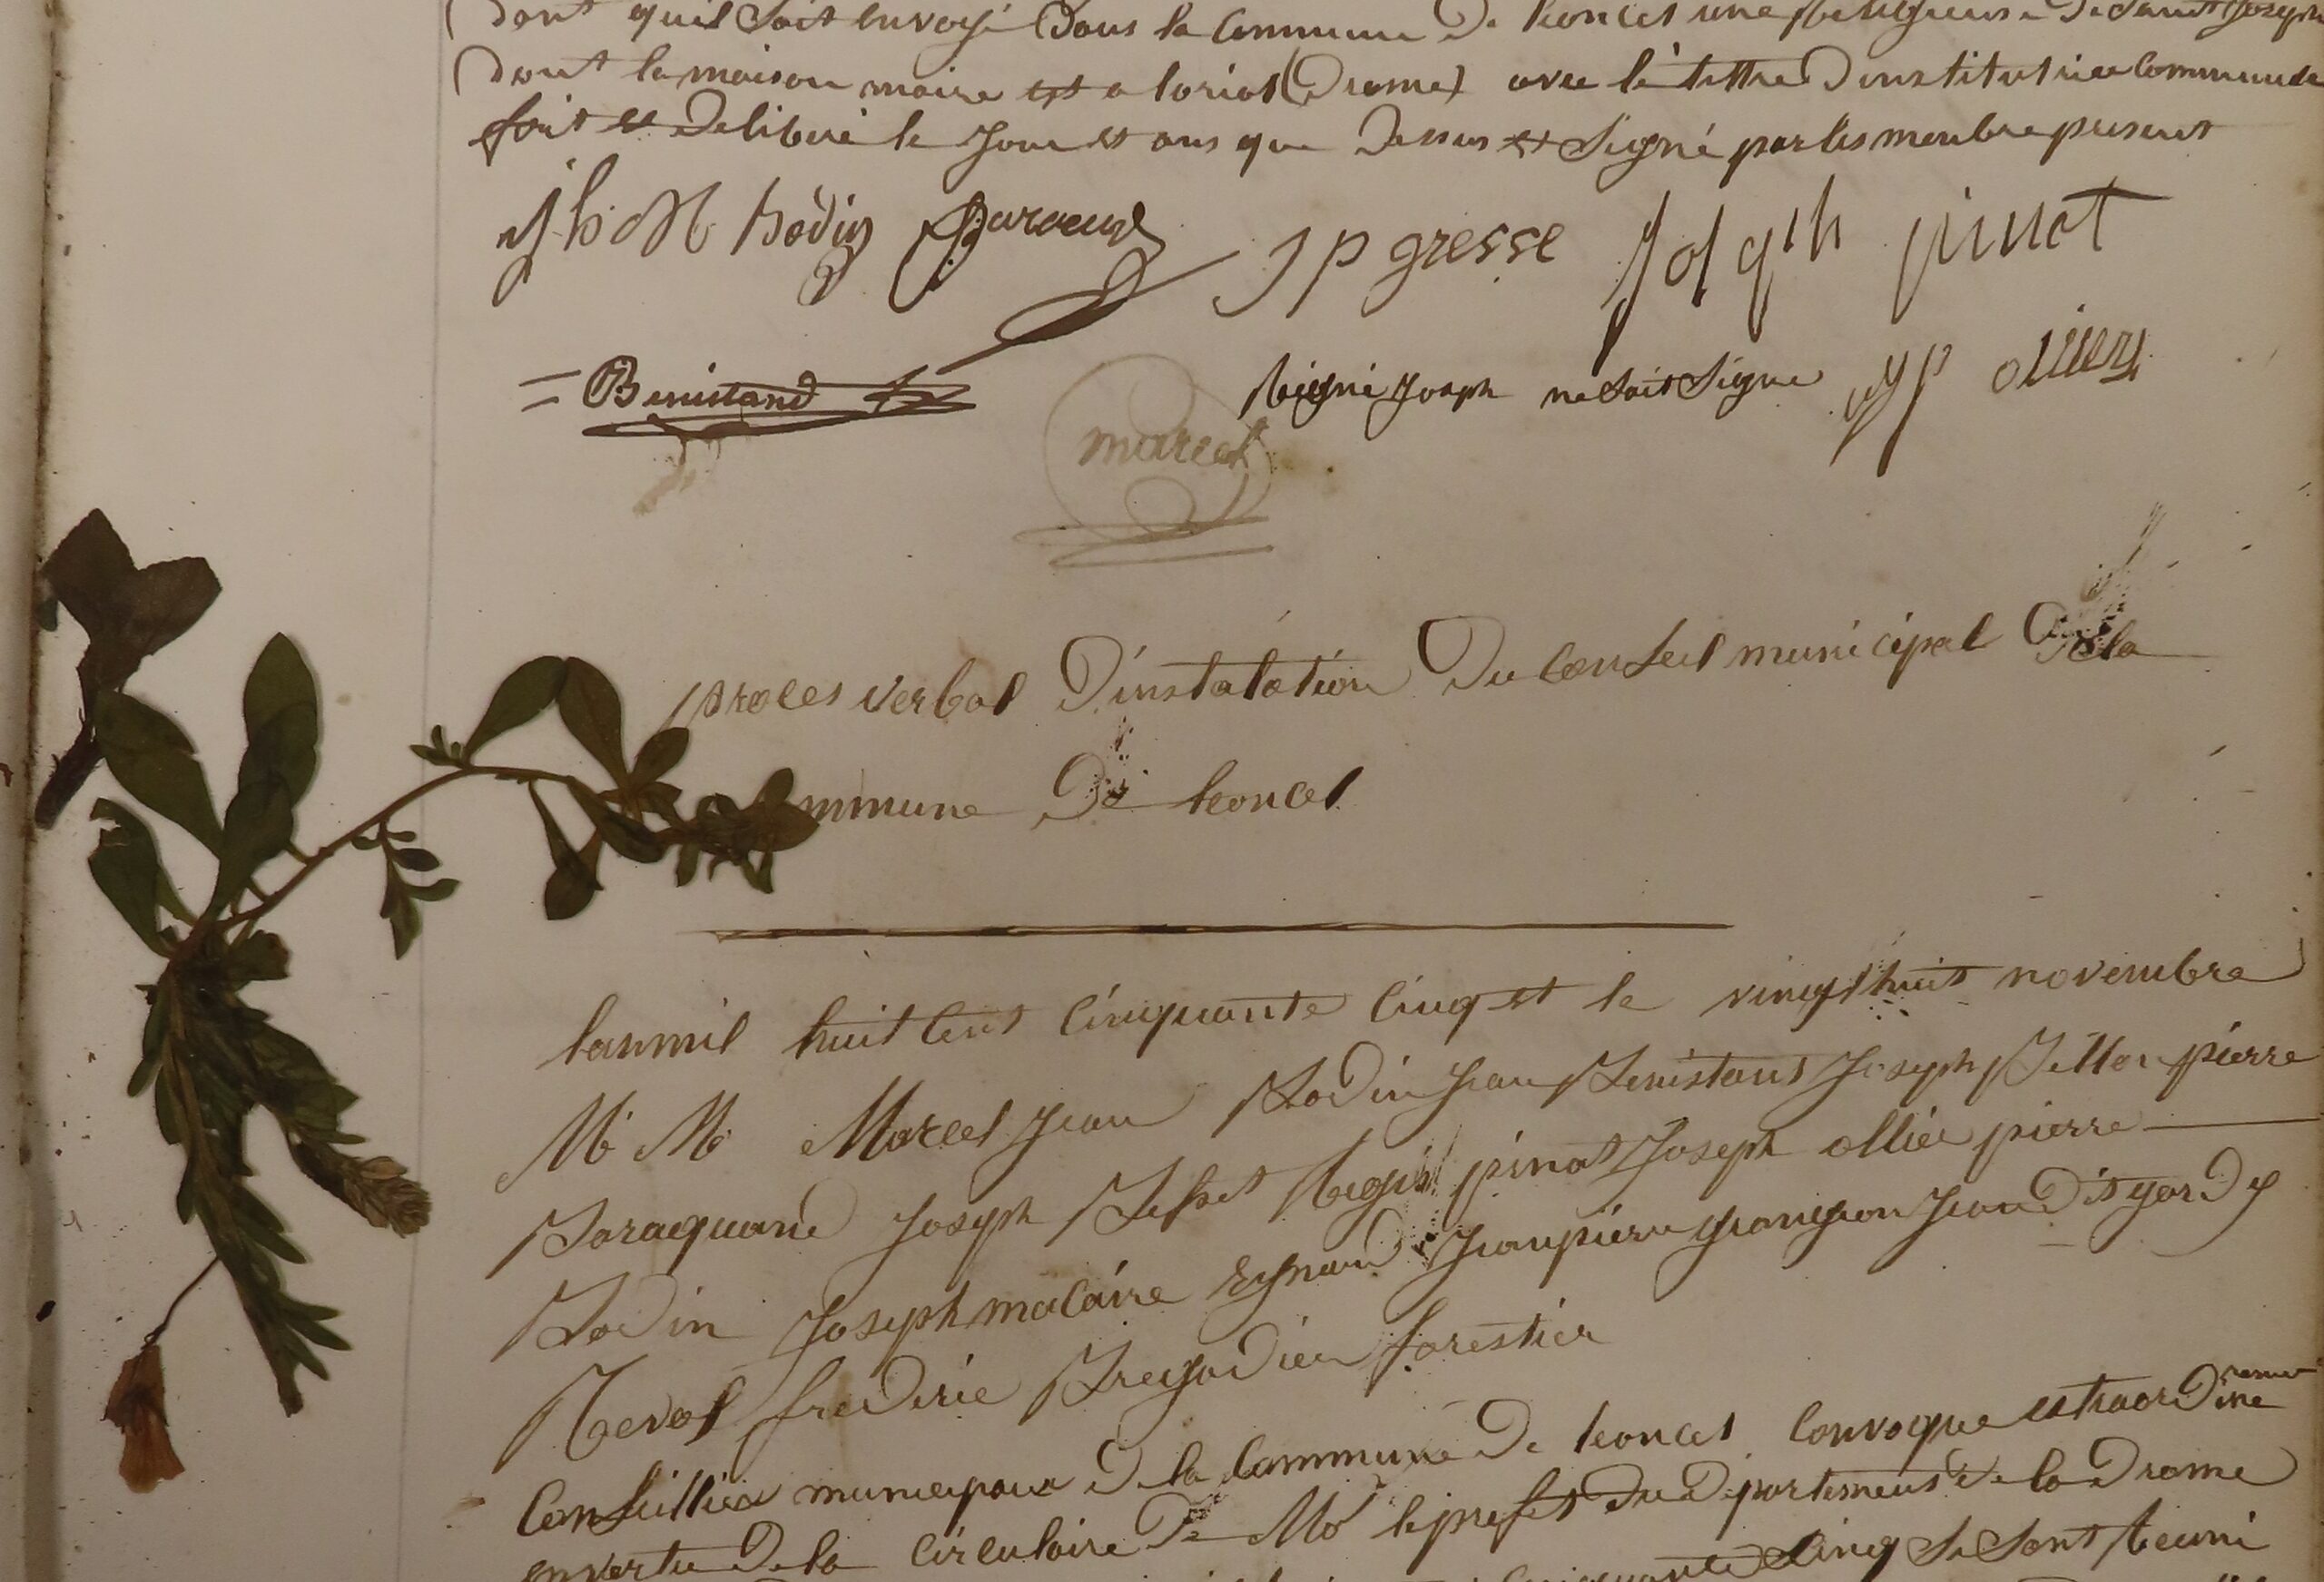 dont quil soit envoyé dans la Commune de Leoncel une Religieuse de Saint Joseph
dont la maison maire est a loriol (Drome) avec le tittre dinstitutrice Communale
fait et deliberé le jour et ans que dessus et signé par les menbre present
Bodin
J P gresse Joseph pinat
Benistand
Joseph ne sait signé J P ollier
marcel
proces verbal d'instalation du Conseil municipal de la
mmune de Leoncel
lanmil huit cent Cinquante Cinq et le vingt huit novembre
M M Marcel Jean Bodin Jean Benistant Joseph pierre
Joseph pinat Joseph ollier pierre
Bodin Joseph macaire Eynard Jean pierre grangeon Jean dit
Revol frederic forestier
Conseillier municipaux de la Commune de Leoncel Convoque extraordinerement
en vertu de la Circulaire de Mr le prefet du Departement de la Drome
Cinq se sont reuni